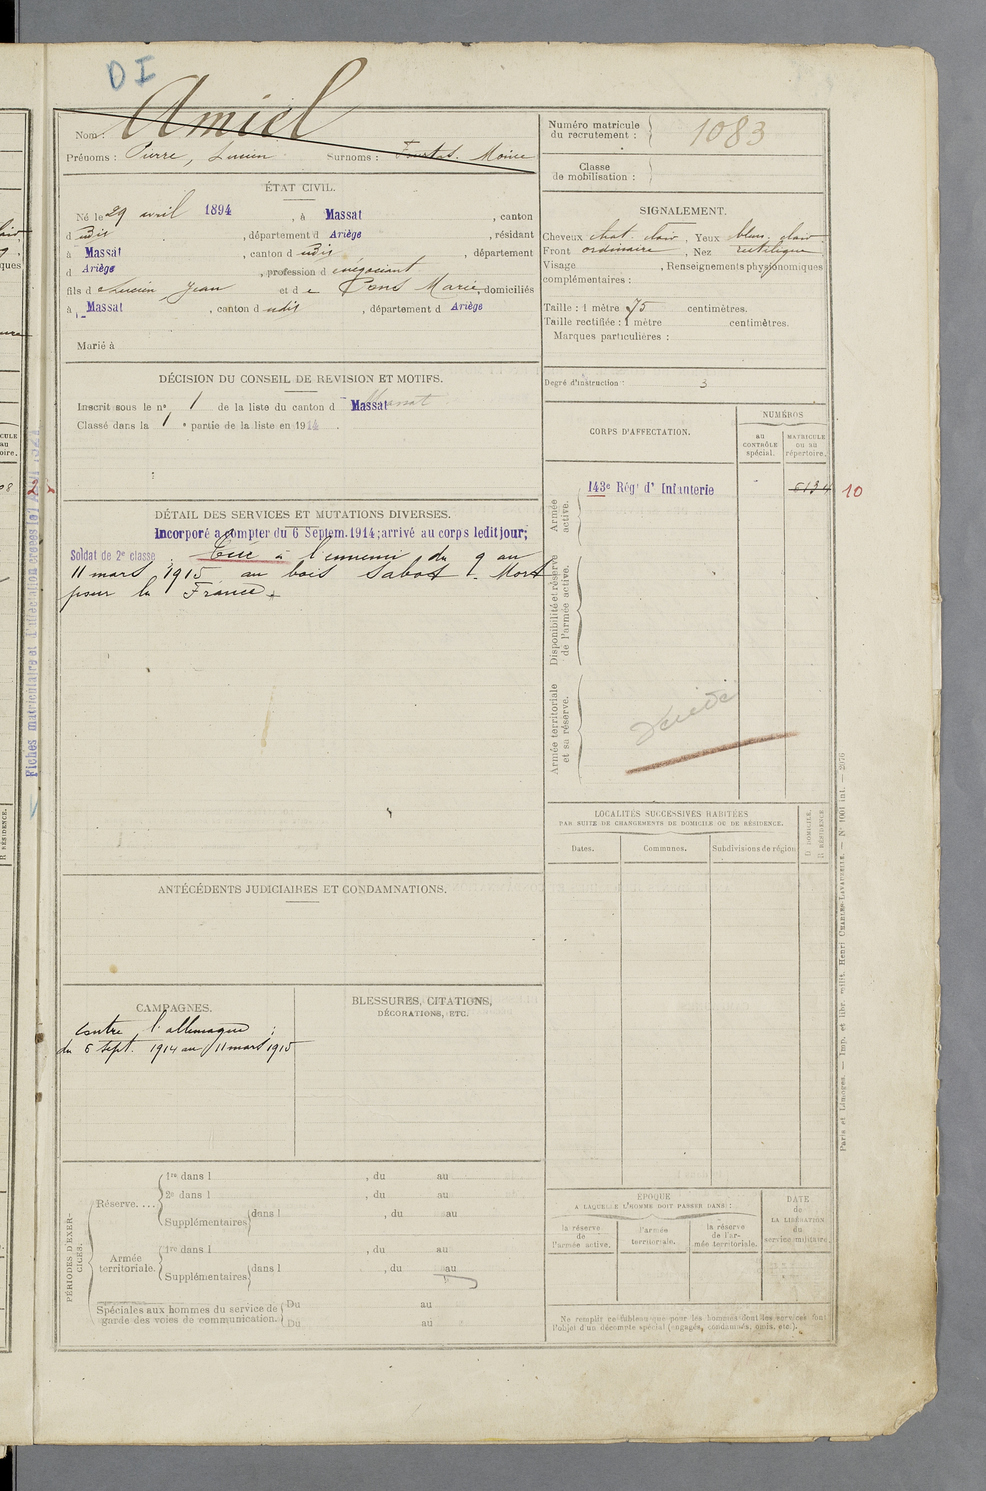 DI
Nom : Amiel
Prénoms : Pierre, Lucien Surnoms :
Numéro matricule
du recrutement : 1083
Classe
de mobilisation :
ÉTAT CIVIL.
Né le 29 avril 1894, à Massat, canton
dudit, département d Ariège, résidant
à Massat, canton dudit, département
d Ariège, profession de négociant
fils de Lucien Jean et de Pons Marie, domiciliés
à Massat, canton dudit, département d Ariège
Marié à
SIGNALEMENT.
Cheveux chat. clair, Yeux bleu clair
Front ordinaire, Nez rectiligne
Visage , Renseignements physionomiques
complémentaires :
Taille : 1 mètre 75 centimètres.
Taille rectifiée : 1 mètre centimètres.
Marques particulières :
Degré d'instruction : 3
DÉCISION DU CONSEIL DE REVISION ET MOTIFS.
Inscrit sous le n° 1 de la liste du canton d Massat
Classé dans la 1e partie de la liste en 1914.
CORPS D'AFFECTATION.
NUMÉROS
au
CONTRÔLE
spécial.
MATRICULE
ou au
répertoire.
Armée
active.
143e Régt d' Infanterie
10
Disponibilité et réserve
de l'armée active.
Armée territoriale
et sa réserve.
DÉTAIL DES SERVICES ET MUTATIONS DIVERSES.
Incorporé à compter du 6 Septem. 1914; arrivé au corps ledit jour;
Soldat de 2e classe Tué à l'ennemi, du 9 au
11 mars 1915 au bois Sabot. Mort
pour la France.
Décédé
LOCALITÉS SUCCESSIVES HABITÉES
PAR SUITE DE CHANGEMENTS DE DOMICILE OU DE RÉSIDENCE.
Dates.
Communes.
Subdivisions de région
D DOMICILE.
R RÉSIDENCE.
ANTÉCÉDENTS JUDICIAIRES ET CONDAMNATIONS.
CAMPAGNES.
contre l'allemagne :
du 6 sept. 1914 au 11 mars 1915
BLESSURES, CITATIONS,
DÉCORATIONS, ETC.
PÉRIODES D'EXER-
CICES.
Réserve....
1re dans l , du au
2e dans l , du au
Supplémentaires dans l , du au
Armée
territoriale.
1re dans l , du au
Supplémentaires dans l , du au
Spéciales aux hommes du service de
garde des voies de communication.
Du au
Du au
ÉPOQUE
A LAQUELLE L'HOMME DOIT PASSER DANS :
la réserve
de
l'armée active.
l'armée
territoriale.
la réserve
de l'ar-
mée territoriale.
DATE
de
LA LIBÉRATION
du
service militaire.
Ne remplir ce tableau que pour les hommes dont les services font
l'objet d'un décompte spécial (engagés, condamnés, omis, etc.).
Paris et Limoges. — Imp. et libr. milit. Henri CHARLES-LAVAUZELLE. — N° 1001 int. — 2076